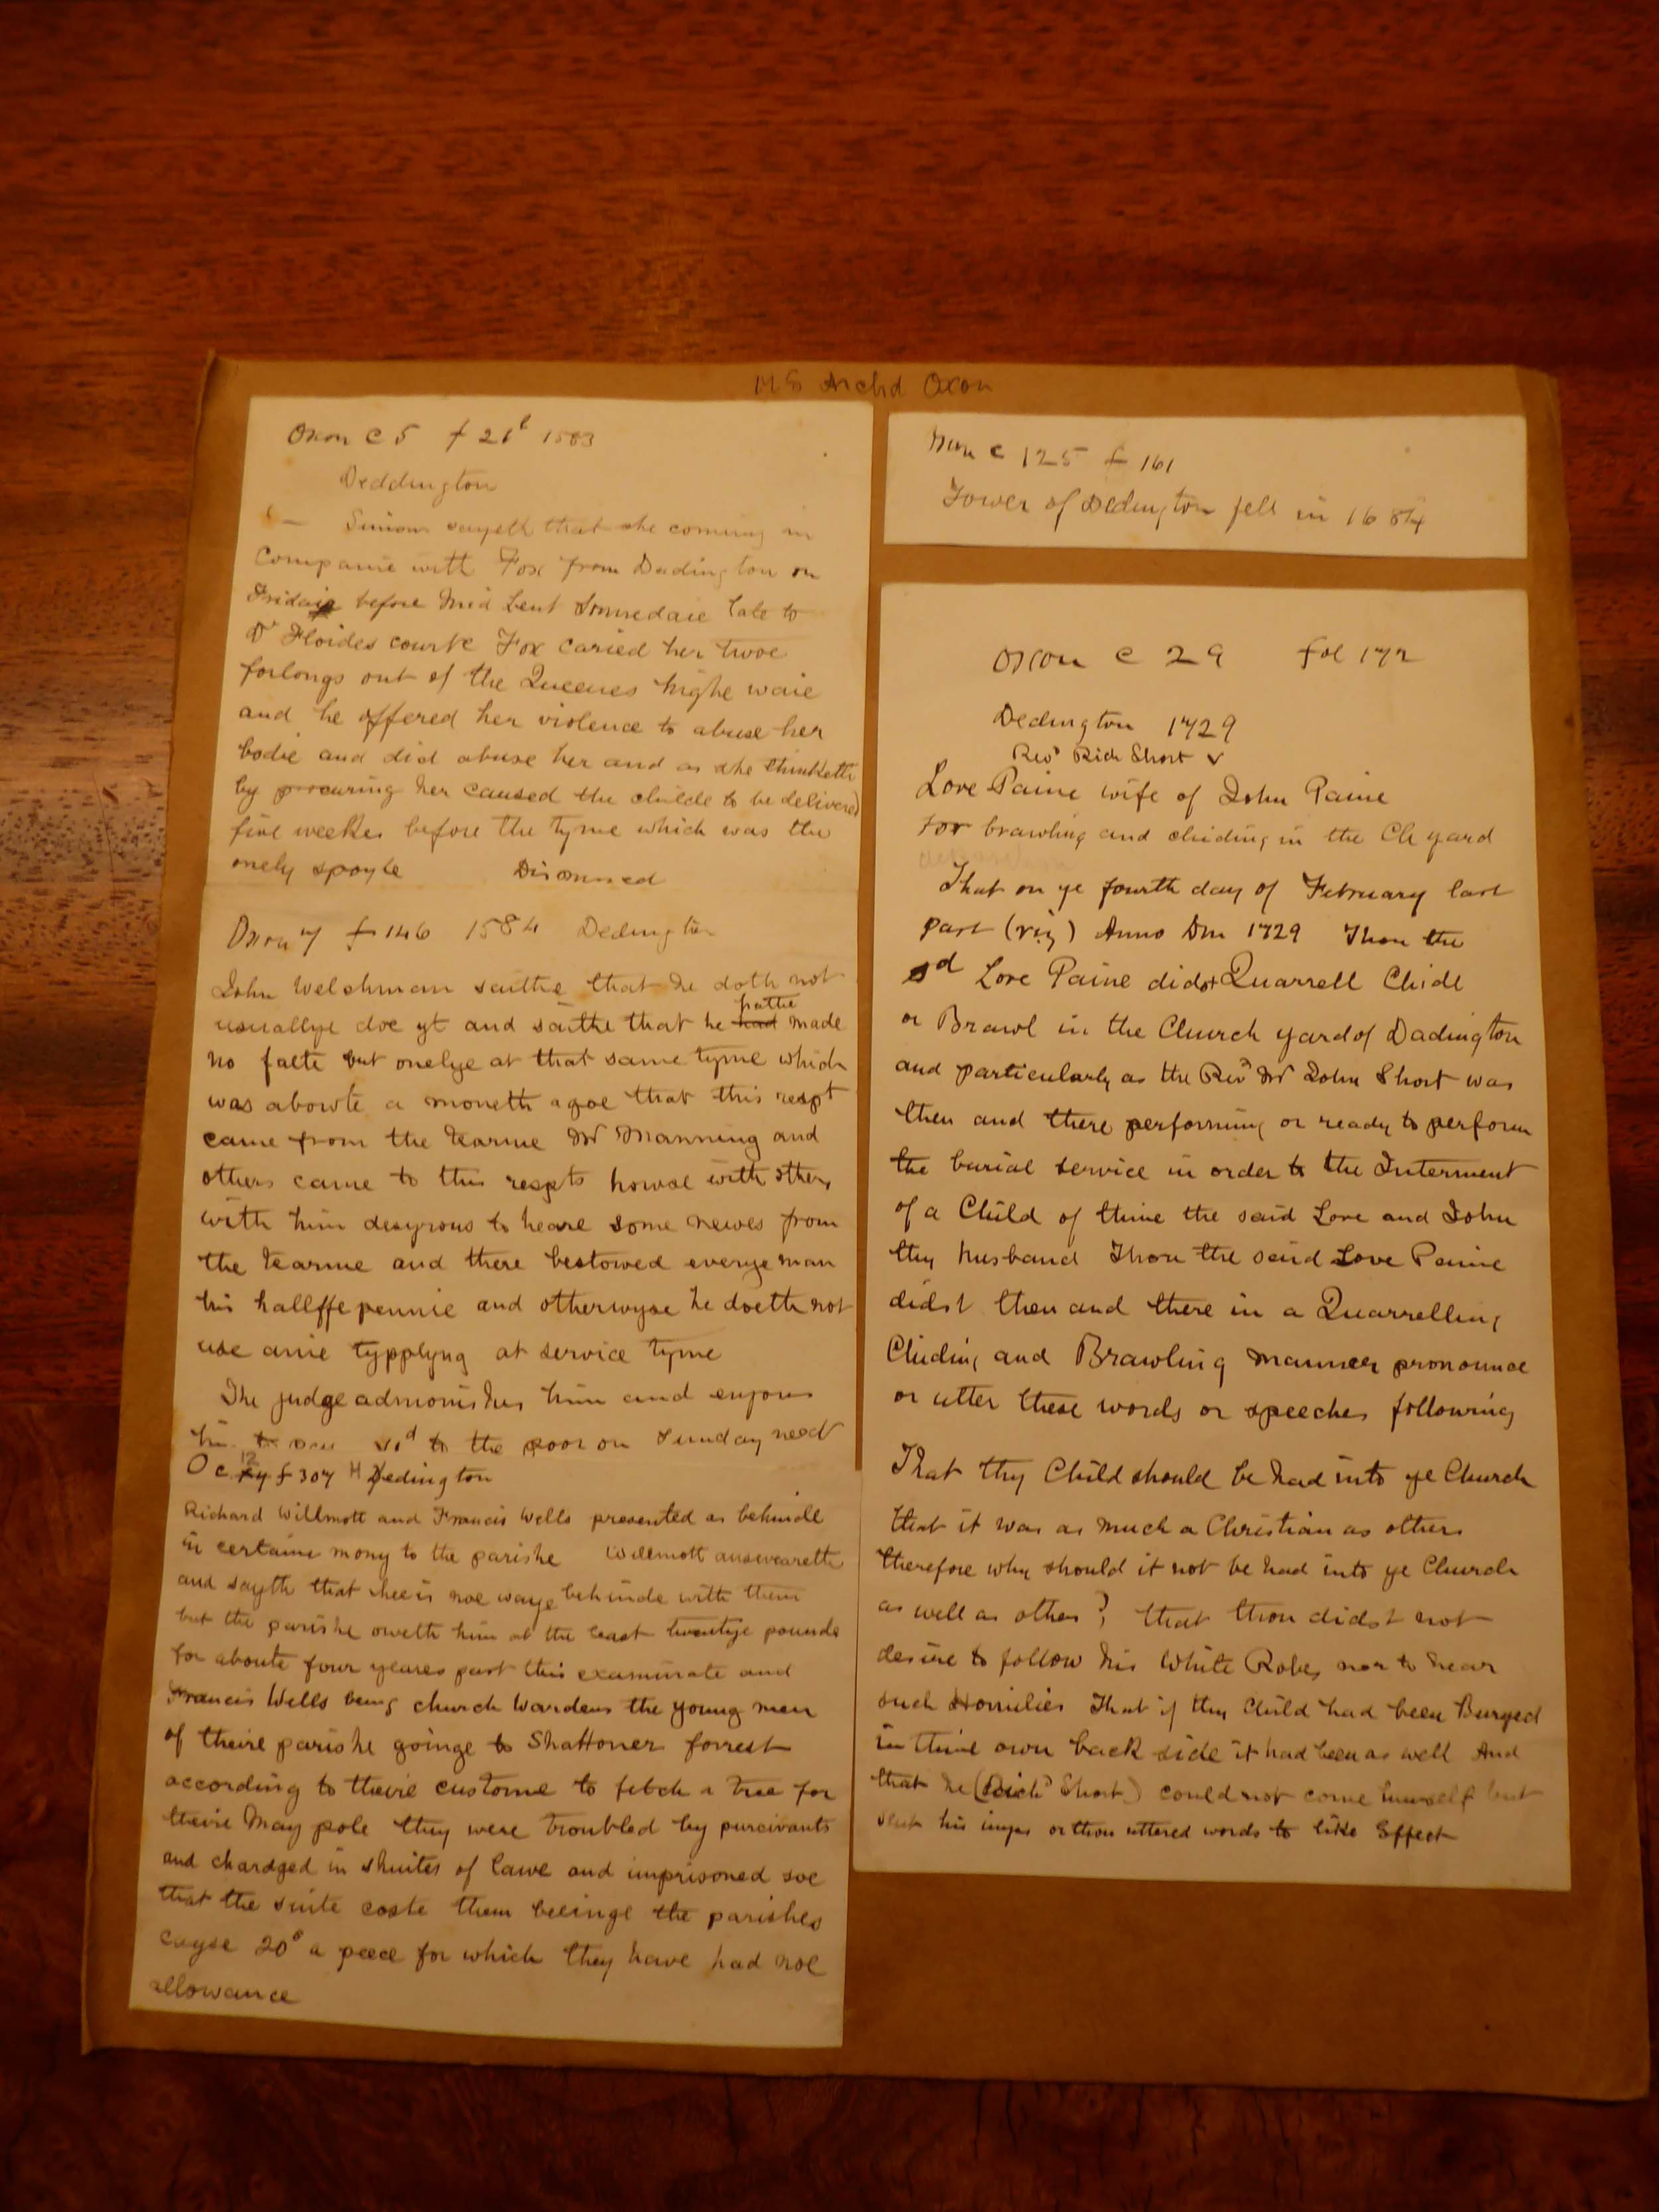 MS Archd Oxon
Oxon c 5 f 21b 1583
Deddington
Simons sayeth that she coming in
Companie with Fox from Dadington on
Fridaie before Mid Lent Sonnedaie late to
Dr Floides courte Fox caried her twoe
forlongs out of the Queenes highe waie
and he offered her violence to abuse her
bodie and did abuse her and as she thinketh
by procuring her caused the childe to be delivered
five weekes before the tyme which was the
onely spoyle Dismissed
Oxon 7 f 146 1584 Dedington
John Welchman saithe that he doth not
usuallye doe yt and saithe that he had hathe made
no falte but onelye at that same tyme which
was abowte a moneth agoe that this respt
came from the tearme Mr Manning and
others came to this respts howse with others
with him desyrous to heare some newes from
the tearme and there bestowed everye man
his hallffe pennie and otherwyse he doeth not
use anie typplyng at service tyme
The judge admonishes him and enjoins
him to to the poor on Sunday next
O c 12 f 307 Dedington
Richard Willmott and Francis Wells presented as behinde
in certaine mony to the parishe Willmott answeareth
and sayth that hee is noe waye behinde with them
but the parishe oweth him at the least twentye pounds
for aboute four yeares past this examinate and
Francis Wells being church Wardens the young men
of theire parishe goinge to Shattoner forrest
according to theire custome to fetch a tree for
theire May pole they were troubled by purcivants
and chardged in shuites of lawe and imprisoned soe
that the suite coste them beeinge the parishes
cayse 20s a peece for which they have had noe
allowance
c 125 f 161
Tower of Dedington fell in 1684
Oxon c 29 fol 172
Dedington 1729
Revd Rich Short v
Love Paine wife of John Paine
for brawling and chiding in the Ch yard
That on ye fourth day of February last
past (viz) Anno Dm 1729 Thou the
sd Love Paine didst Quarrell Chide
or Brawl in the Church yard of Dadington
and particularly as the Revd Mr John Short was
then and there performing or ready to perform
the burial service in order to the Interment
of a Child of thine the said Love and John
thy husband Thou the said Love Paine
didst then and there in a Quarrelling
Chiding and Brawling manner pronounce
or utter these words or speeches following
That thy Child should be had into ye Church
that it was as much a Christian as others
therefore why should it not be had into ye Church
as well as others? that thou didst not
desire to follow his White Robes nor to hear
such Homilies That if thy Child had been Buryed
in thine own back side it had been as well And
that he (Richd Short) could not come himself but
sent his imps or thou uttered words to like Effect